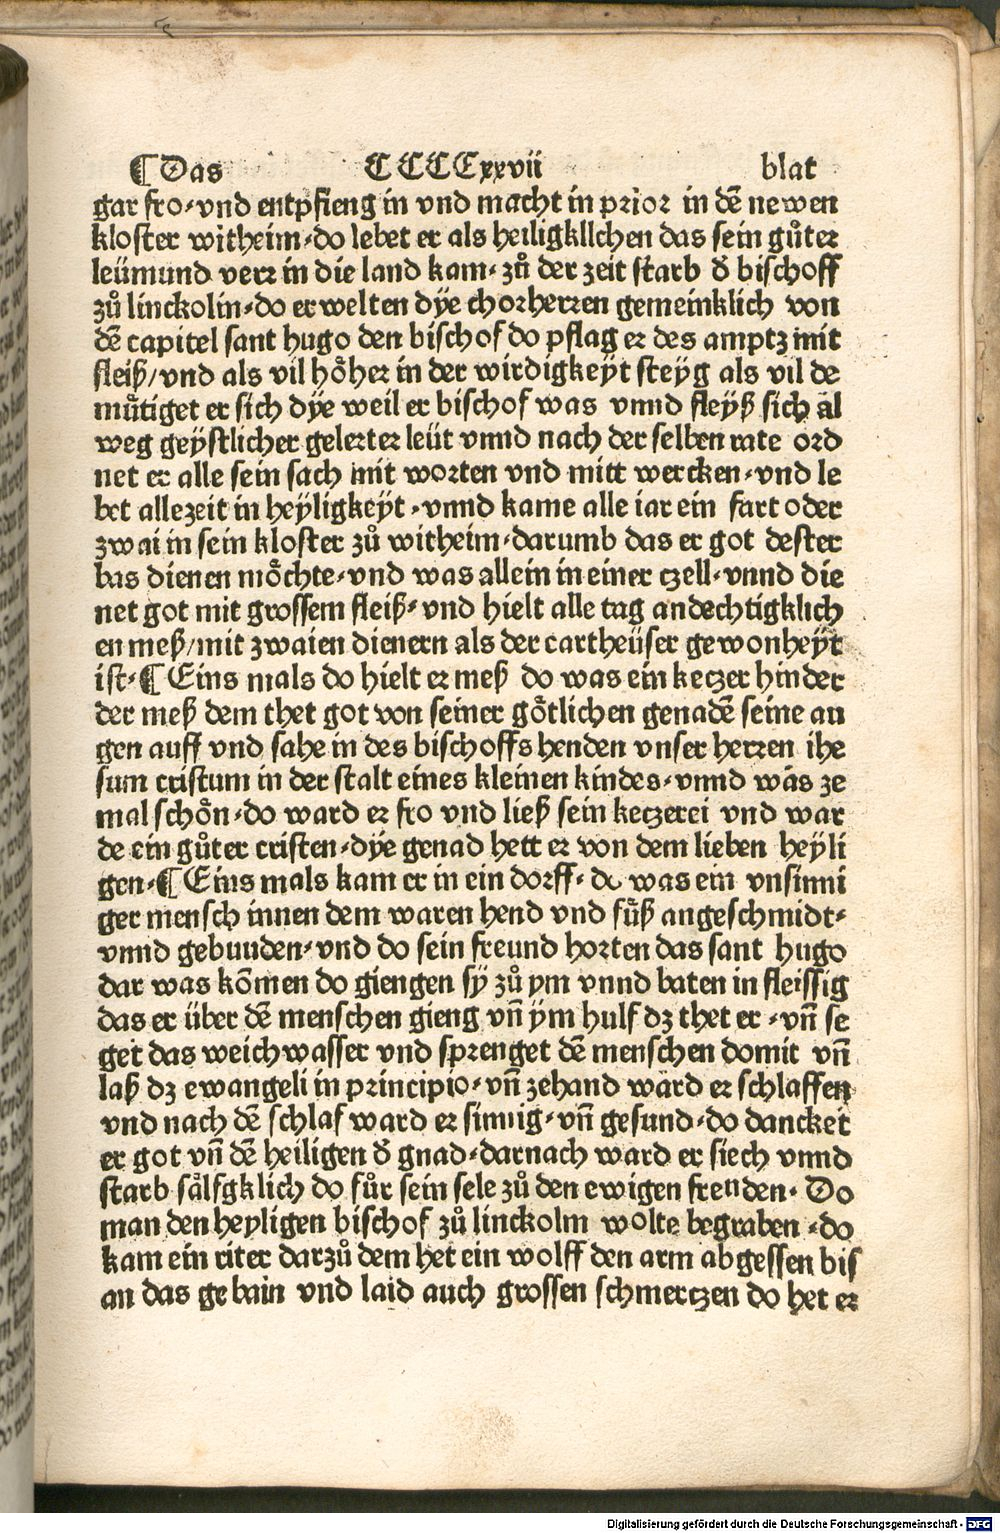 ¶Das CCCCxxvii blat
gar fro⸗vnd entpfieng in vnd macht in prior in dē newen
kloster witheim⸗do lebet er als heiligkllchen das sein gůter
leümund verr in die land kam⸗zů der zeit starb d̕ bischoff
zů linckolin⸗do erwelten dÿe chorherren gemeinklich von
dē capitel sant hugo den bischof do pflag er des amptz mit
fleiß/vnd als vil hoͤher in der wirdigkeyt steyg als vil de
muͤtiget er sich dÿe weil er bischof was vnnd fleyß sich al
weg geÿstlicher gelerter leüt vnnd nach der selben rate ord
net er alle sein sach mit worten vnd mitt wercken⸗vnd le
bet allezeit in heÿligkeÿt⸗vnnd kame alle iar ein fart oder
zwai in sein kloster zů witheim⸗darumb das er got dester
bas dienen moͤchte⸗vnd was allein in einer czell⸗vnnd die
net got mit grossem fleiß⸗vnd hielt alle tag andechtigklich
en meß/mit zwaien dienern als der cartheüser gewonheÿt
ist⸗¶Eins mals do hielt er meß do was ein keczer hinder
der meß dem thet got von seiner goͤtlichen genadē seine au
gen auff vnd sahe in des bischoffs henden vnser herren ihe
sum cristum in der stalt eines kleinen kindes⸗vnnd was ze
mal schoͤn⸗do ward er fro vnd ließ sein keczerei vnd war
de ein gůter cristen⸗dÿe genad hett er von dem lieben heÿli
gen⸗¶Eins mals kam er in ein dorff⸗do was ein vnsinni
ger mensch innen dem waren hend vnd fuͤß angeschmidt⸗
vnnd gebuuden⸗vnd do sein freund horten das sant hugo
dar was kōmen do giengen sÿ zů ym vnnd baten in fleissig
das er über dē menschen gieng vn̄ ÿm hulf dz thet er⸗vn̄ se
get das weichwasser vnd sprenget dē menschen domit vn̄
laß dz ewangeli in principio⸗vn̄ zehand ward er schlaffen
vnd nach dē schlaf ward er sinnig⸗vn̄ gesund⸗do dancket
er got vn̄ dē heiligen d̕ gnad⸗darnach ward er siech vnnd
starb saͤlfgklich do fůr sein sele zů den ewigen freuden⸗Do
man den heyligen bischof zů linckolm wolte begraben⸗do
kam ein riter darzů dem het ein wolff den arm abgessen bis
an das gebain vnd laid auch grossen schmerczen do het er
Digitalisierung gefördert durch die Deutsche Forschungsgemeinschaft - DFG